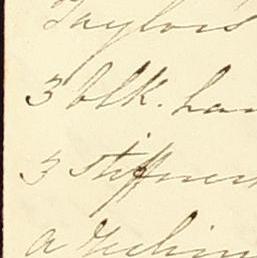 Taylors
3 blk. han
3 stiffner
a